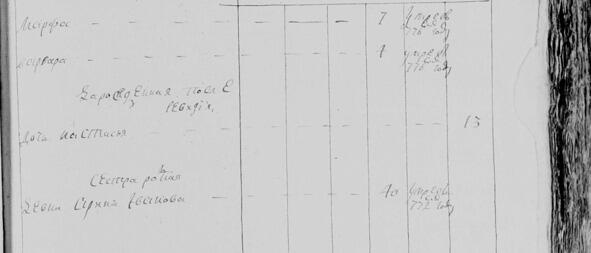 Марфа — — — — 7 умре в 776 году
варвара — — — — 4 умре в 776 году
Зарожденная После
ревизии,
дочь настасья — — — 13
Сестра родная
девка Ивановна — — 40 умре в 772 году